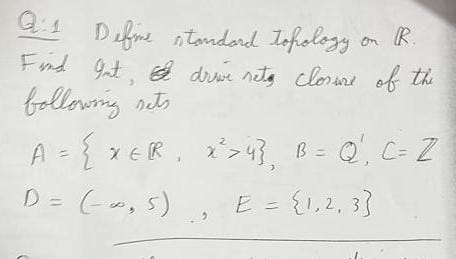 Q:1 Define standard topology on ℝ.
Find Int, drive sets closure of the
following sets
A = { x ∈ ℝ, x² > 4}, B = Q', C = Z
D = (-∞, 5), E = {1, 2, 3}